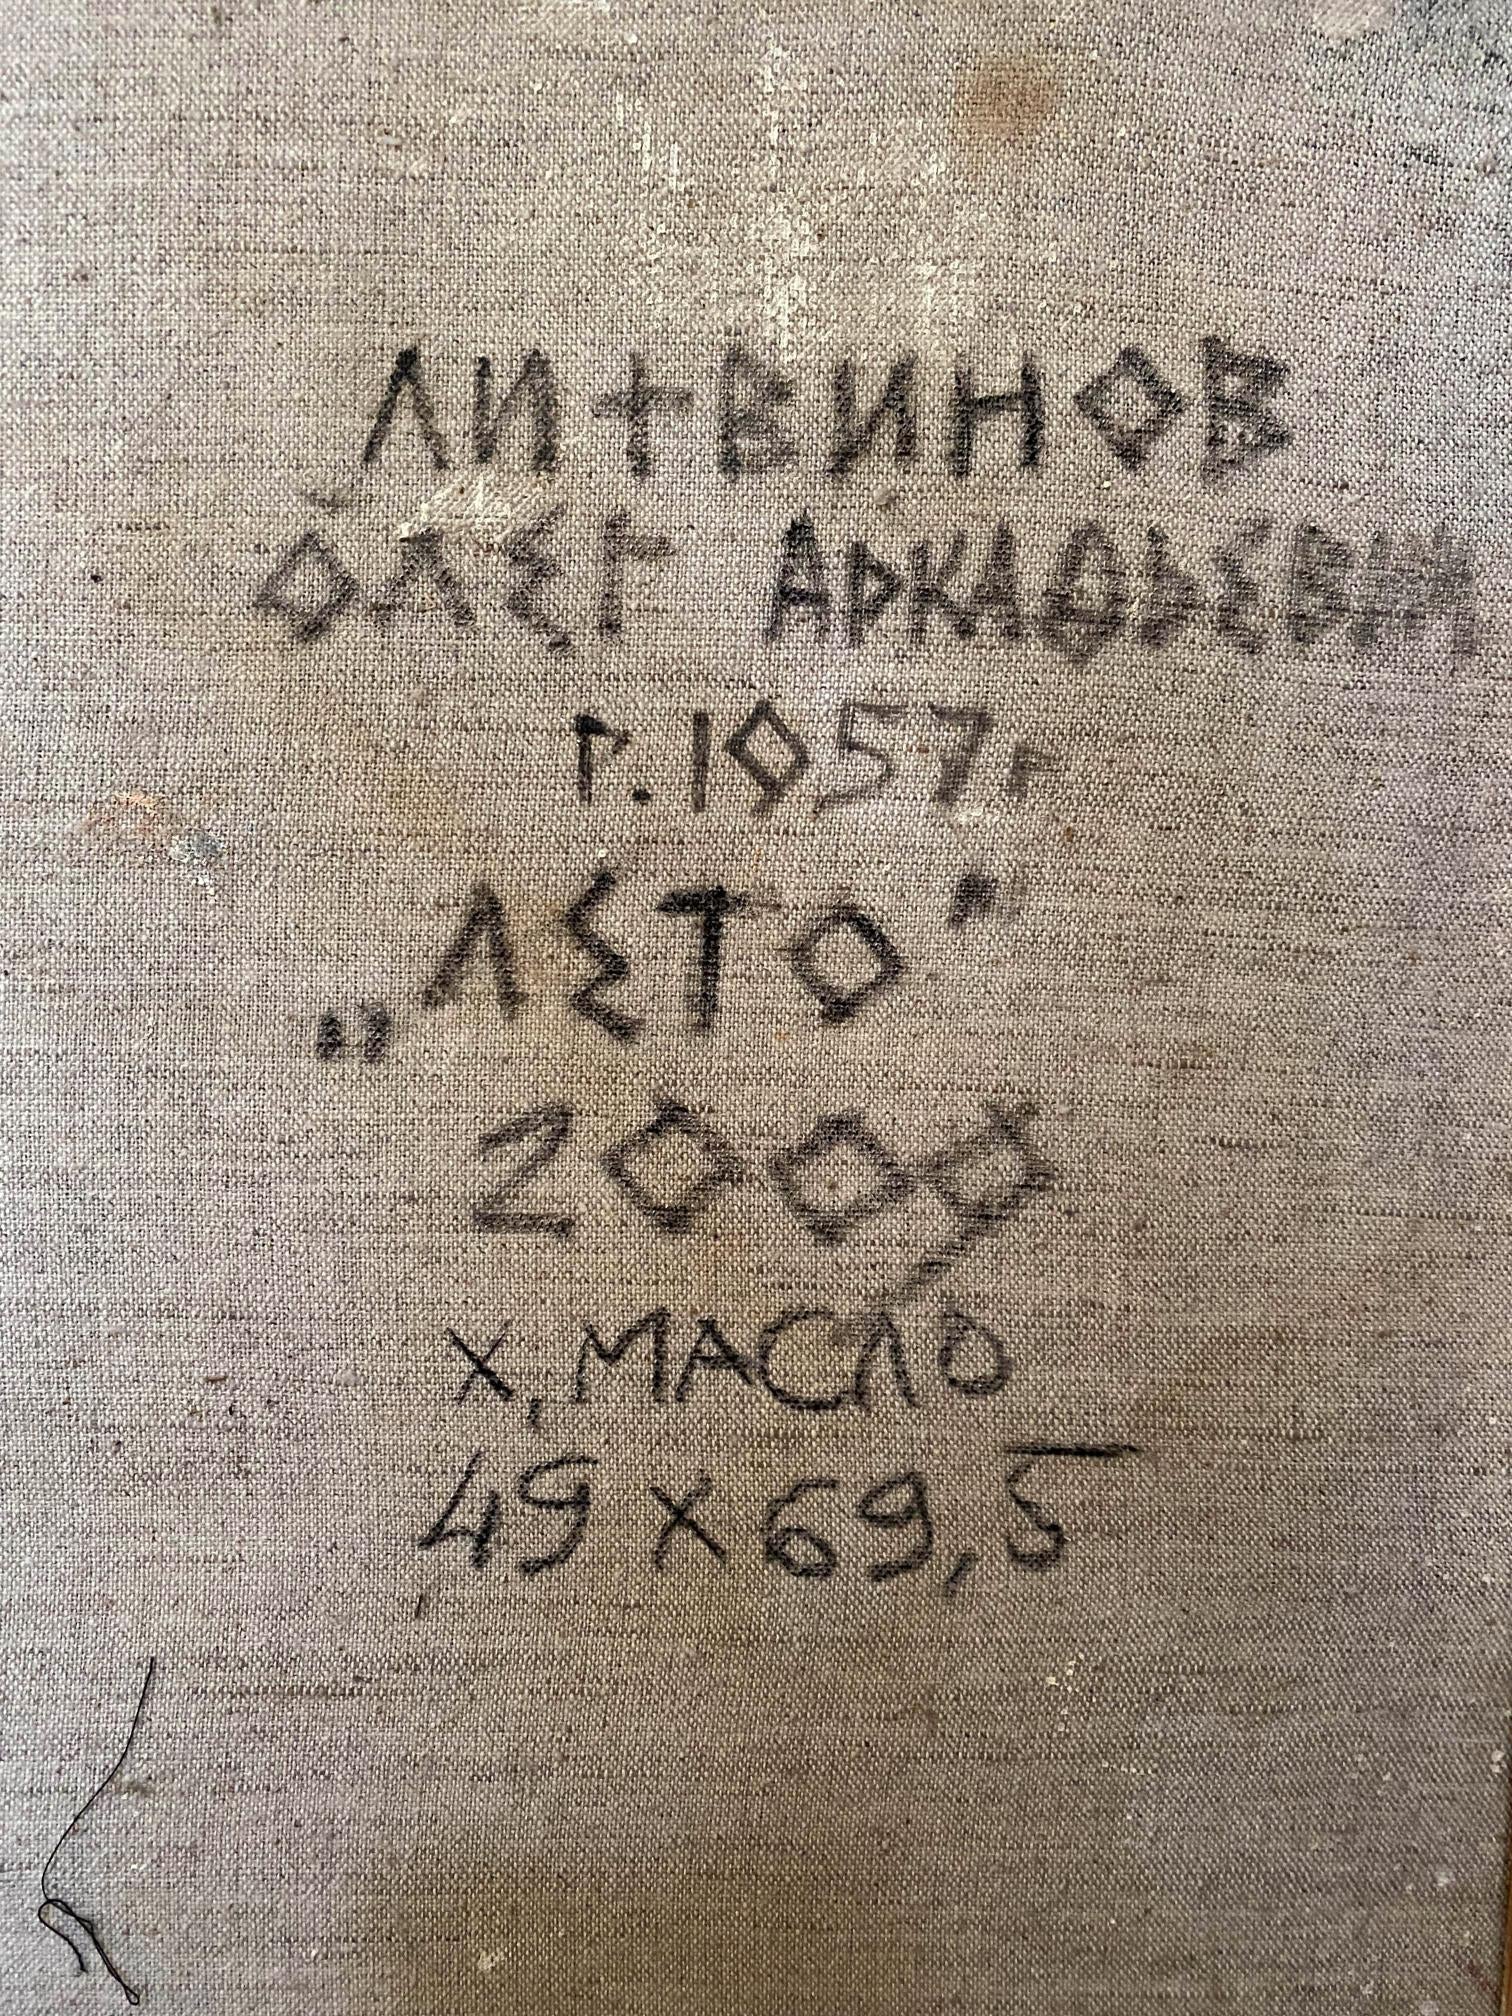 ЛИТВИНОВ
ОЛЕГ АРКАДЬЕВИЧ
Г. 1957 г
„ЛЕТО"
2009
Х, МАСЛО
49 х 69,5